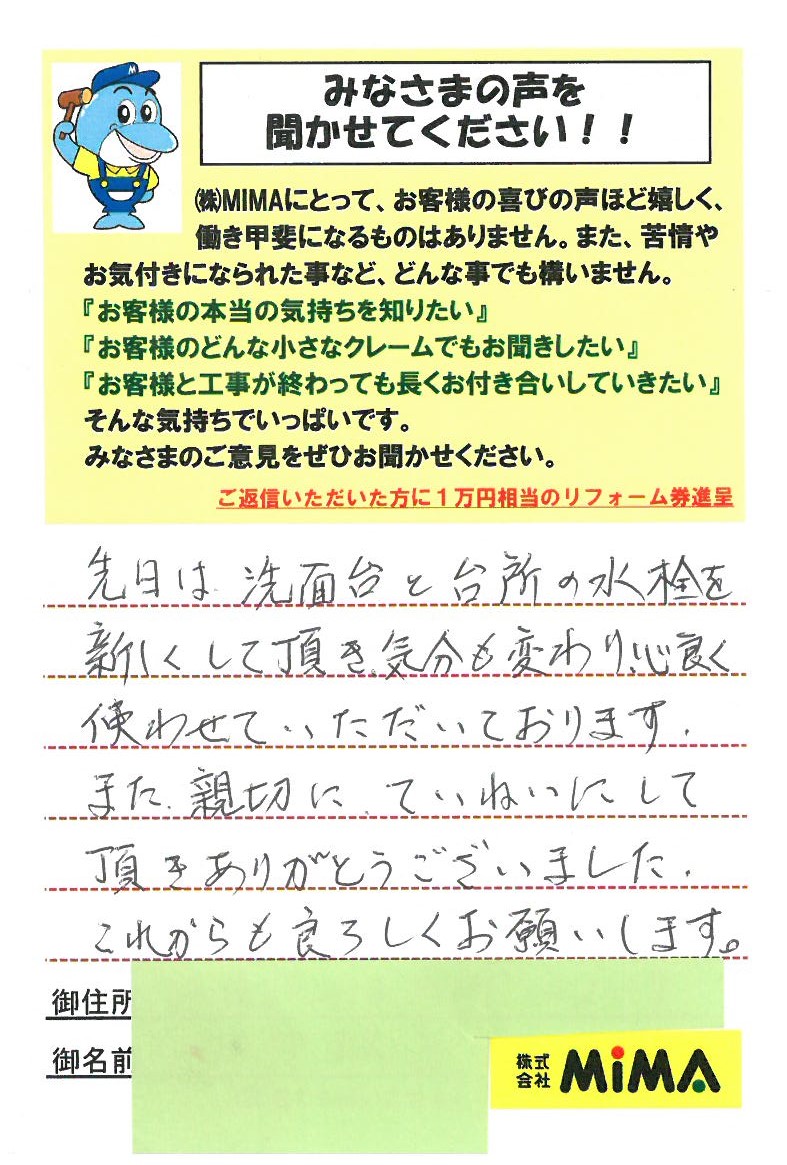 みなさまの声を
聞かせてください！！
㈱MIMAにとって、お客様の喜びの声ほど嬉しく、
働き甲斐になるものはありません。また、苦情や
お気付きになられた事など、どんな事でも構いません。
『お客様の本当の気持ちを知りたい』
『お客様のどんな小さなクレームでもお聞きしたい』
『お客様と工事が終わっても長くお付き合いしていきたい』
そんな気持ちでいっぱいです。
みなさまのご意見をぜひお聞かせください。
ご返信いただいた方に１万円相当のリフォーム券進呈
先日は、洗面台と台所の水栓を
新しくして頂き、気分も変わり、心良く
使わせていただいております。
また、親切に、ていねいにして
頂きありがとうございました。
これからも良ろしくお願いします。
御住所
御名前
株式
会社 MiMA